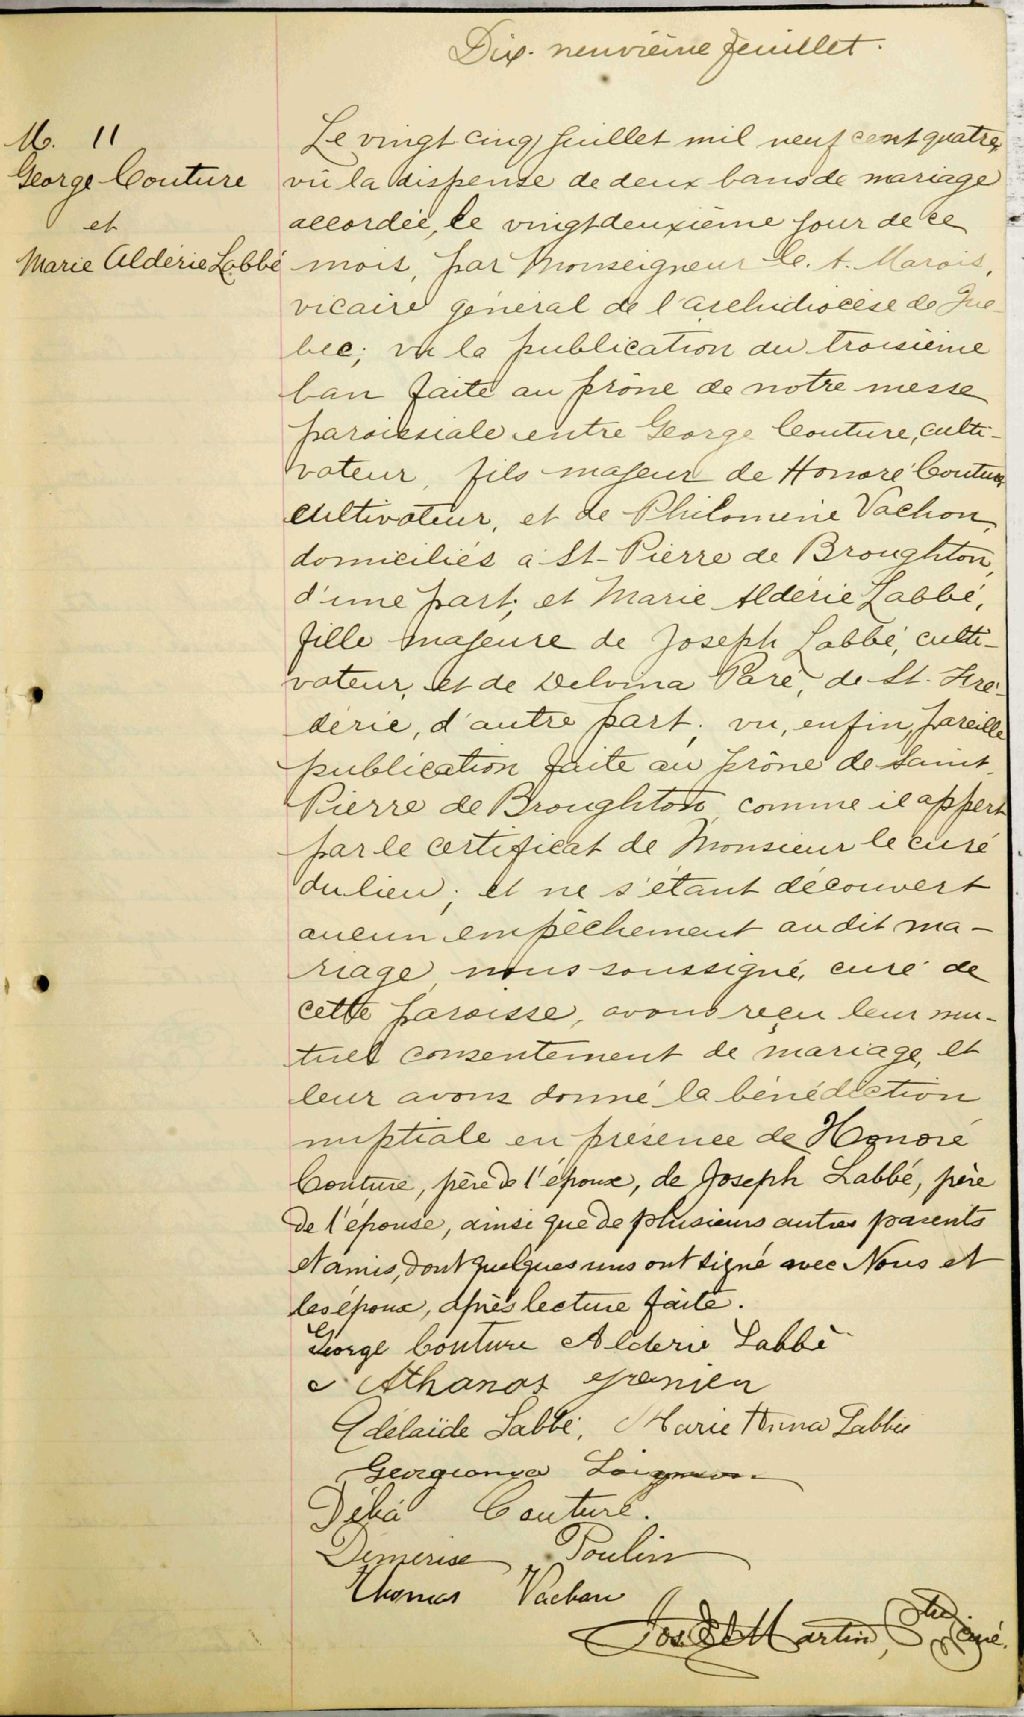 Dix-neuvième feuillet.
M. 11
George Couture
et
Marie Aldérie Labbé
Le vingt cinq juillet mil neuf cent quatre,
vû la dispense de deux bans de mariage
accordée, le vingtdeuxième jour de ce
mois, par Monseigneur C. A. Marois,
vicaire général de l'archidiocèse de Qué-
bec; vu la publication du troisième
ban faite au prône de notre messe
paroissiale entre George Couture, culti-
vateur, fils majeur de Honoré Couture
cultivateur, et de Philomène Vachon,
domiciliés à St-Pierre de Broughton,
d'une part; et Marie Aldérie Labbé,
fille majeure de Joseph Labbé, culti-
vateur, et de Delvina Paré, de St. Fré-
déric, d'autre part; vu, enfin, pareille
publication faite au prône de Saint-
Pierre de Broughton, comme il appert
par le certificat de Monsieur le curé
du lieu; et ne s'étant découvert
aucun empêchement au dit ma-
riage, nous soussigné, curé de
cette paroisse, avons reçu leur mu-
tuel consentement de mariage, et
leur avons donné la bénédiction
nuptiale en présence de Honoré
Couture, père de l'époux, de Joseph Labbé, père
de l'épouse, ainsi que de plusieurs autres parents
et amis, dont quelques uns ont signé avec Nous et
les époux, après lecture faite.
George Couture Alderie Labbé
Athanas Grenier
Adélaïde Labbé, Marie Anna Labbé
Georgianna
Délia Couture.
Démerise Poulin
Thomas Vachon
Jos Martin, Ptre Curé.